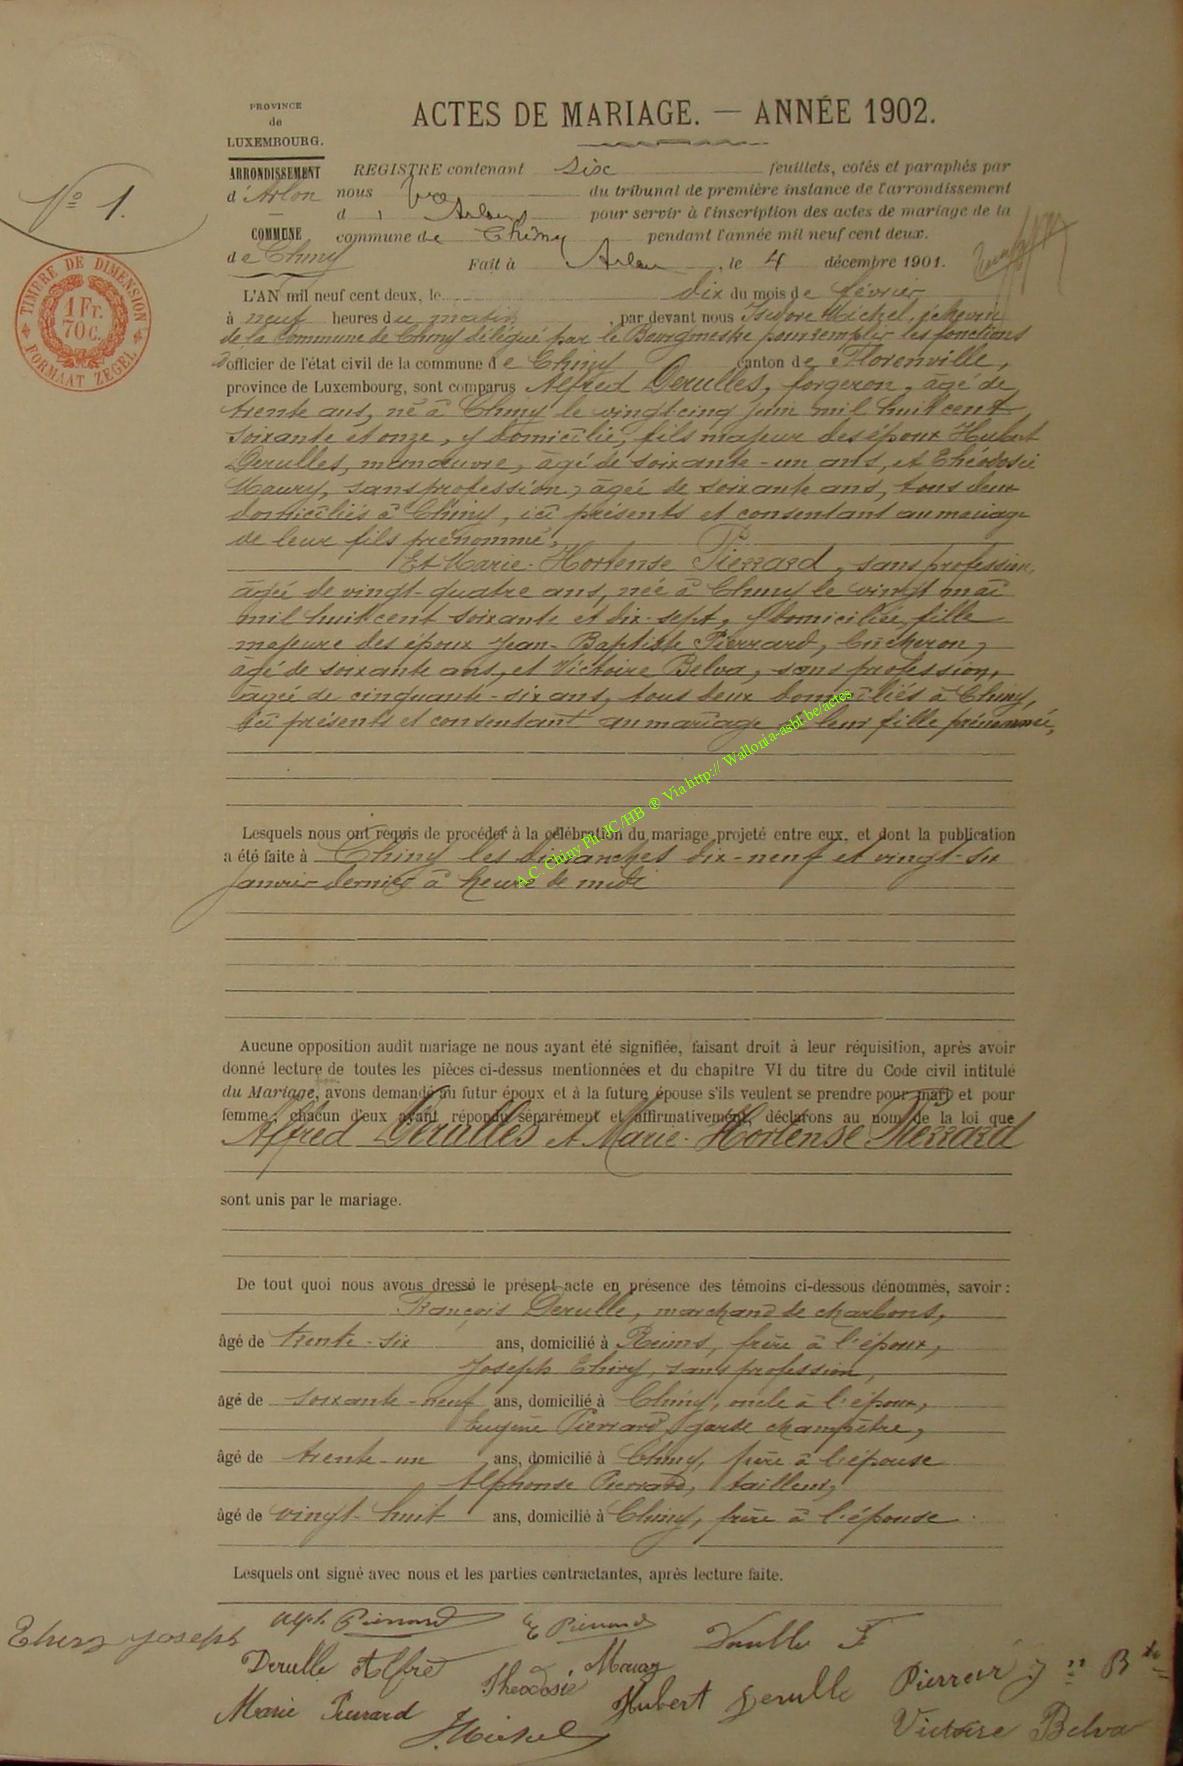 PROVINCE
de
LUXEMBOURG.
ARRONDISSEMENT
d'Arlon
COMMUNE
de Chiny
N° 1.
TIMBRE DE DIMENSION
1 Fr.
70 c.
FORMAAT ZEGEL
ACTES DE MARIAGE. — ANNÉE 1902.
REGISTRE contenant six feuillets, cotés et paraphés par
nous du tribunal de première instance de l'arrondissement
d' Arlon pour servir à l'inscription des actes de mariage de la
commune de Chiny pendant l'année mil neuf cent deux.
Fait à Arlon, le 4 décembre 1901.
L'AN mil neuf cent deux, le dix du mois de février
à neuf heures du matin, par devant nous Isidore Michel, échevin
de la commune de Chiny délégué par le Bourgmestre pour remplir les fonctions
d'officier de l'état civil de la commune de Chiny canton de Florenville,
province de Luxembourg, sont comparus Alfred Derulles, forgeron, âgé de
trente ans, né à Chiny le vingt cinq juin mil huit cent
soixante et onze, y domicilié, fils majeur des époux Hubert
Derulles, manœuvre, âgé de soixante-un ans, et Théodosie
Maury, sans profession, âgée de soixante ans, tous deux
domiciliés à Chiny, ici présents et consentant au mariage
de leur fils prénommé,
Et Marie-Hortense Pierrard, sans profession,
âgée de vingt-quatre ans, née à Chiny le vingt mai
mil huit cent soixante et dix-sept, y domiciliée, fille
majeure des époux Jean-Baptiste Pierrard, bûcheron,
âgé de soixante ans, et Victoire Belva, sans profession,
âgée de cinquante-six ans, tous deux domiciliés à Chiny,
ici présents et consentant au mariage leur fille prénommée,
A.C. Chiny Ph. JC /HB ® Via http:// Wallonia-asbl.be/actes
Lesquels nous ont requis de procéder à la célébration du mariage projeté entre eux, et dont la publication
a été faite à Chiny les dimanches dix-neuf et vingt-six
janvier dernier à heure de midi
Aucune opposition audit mariage ne nous ayant été signifiée, faisant droit à leur réquisition, après avoir
donné lecture de toutes les pièces ci-dessus mentionnées et du chapitre VI du titre du Code civil intitulé
du Mariage, avons demandé au futur époux et à la future épouse s'ils veulent se prendre pour mari et pour
femme; chacun d'eux ayant répondu séparément et affirmativement, déclarons au nom de la loi que
Alfred Derulles et Marie-Hortense Pierrard
sont unis par le mariage.
De tout quoi nous avons dressé le présent acte en présence des témoins ci-dessous dénommés, savoir:
François Derulle, marchand de charbons,
âgé de trente-six ans, domicilié à Reims, frère à l'époux,
Joseph Thiry, sans profession,
âgé de soixante-neuf ans, domicilié à Chiny, oncle à l'époux,
Eugène Pierrard, garde champêtre,
âgé de trente-un ans, domicilié à Chiny, frère à l'épouse
Alphonse Pierrard, tailleur,
âgé de vingt-huit ans, domicilié à Chiny, frère à l'épouse.
Lesquels ont signé avec nous et les parties contractantes, après lecture faite.
Thiry Joseph Alph. Pierrard E Pierrard Derulle F
Derulle Alfred Théodosie Maury Hubert Derulle Pierrard Jn Bte
Marie Pierrard J. Michel Victoire Belva